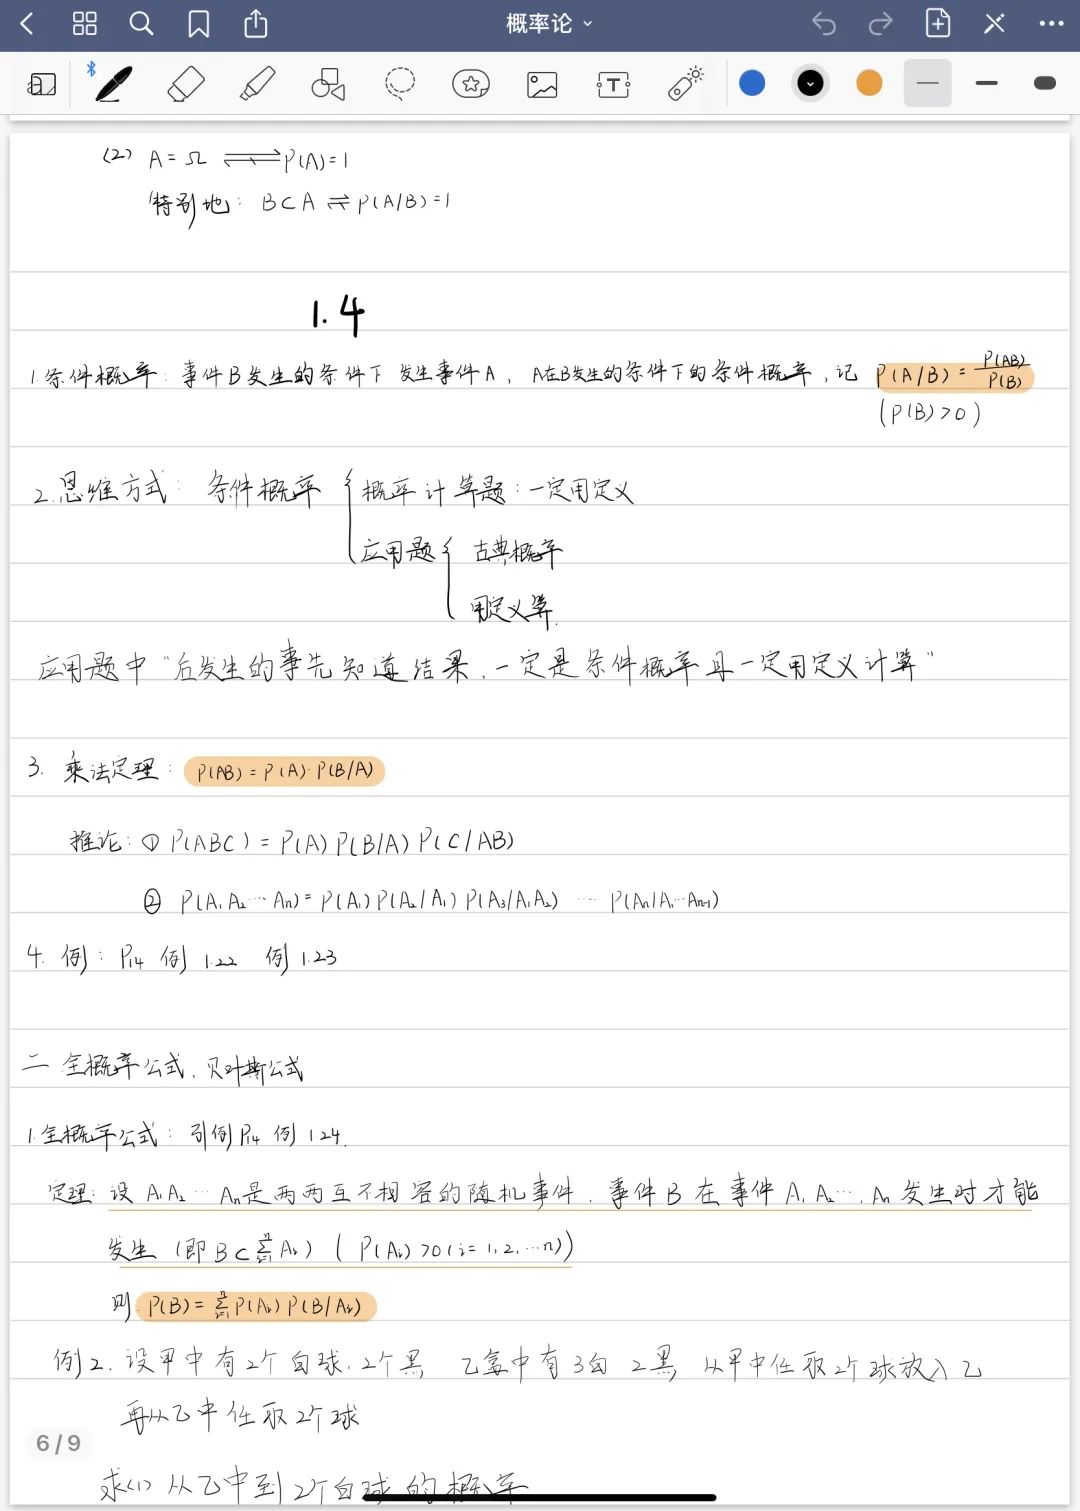 概率论
(2) A=Ω ⇌ P(A)=1
特别地: B⊂A ⇌ P(A/B)=1
1.4
1.条件概率: 事件B发生的条件下 发生事件A, A在B发生的条件下的条件概率, 记 P(A/B)=P(AB)/P(B)
(P(B)>0)
2.思维方式: 条件概率 { 概率计算题:一定用定义
应用题 { 古典概率
用定义算.
应用题中“后发生的事先知道结果, 一定是条件概率且一定用定义计算”
3. 乘法定理: P(AB)=P(A)·P(B/A)
推论: ① P(ABC)=P(A)P(B/A)P(C/AB)
② P(A₁A₂…An)=P(A₁)P(A₂/A₁)P(A₃/A₁A₂) … P(An/A₁…An-1)
4. 例: P14 例1.22 例1.23
二 全概率公式.贝叶斯公式
1.全概率公式: 引例P14 例1.24.
定理: 设A₁A₂…An是两两互不相容的随机事件. 事件B在事件A₁A₂…,An发生时才能
发生 (即B⊂∑ⁿᵢ₌₁Aᵢ) (P(Aᵢ)>0(i=1,2,…n))
则 P(B)=∑ⁿᵢ₌₁P(Aᵢ)P(B/Aᵢ)
例2. 设甲中有2个白球.2个黑 乙盒中有3白2黑 从甲中任取2个球放入乙
再从乙中任取2个球
6/9
求(1) 从乙中到2个白球的概率